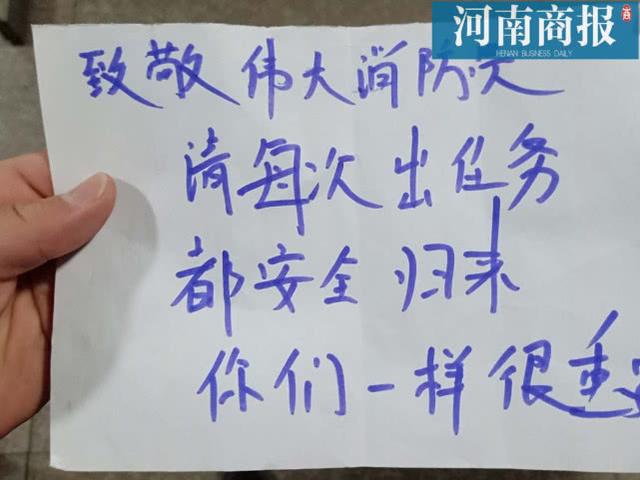 河南商报
HENAN BUSINESS DAILY
致敬伟大消防
请每次出任务
都安全归来
你们一样很重